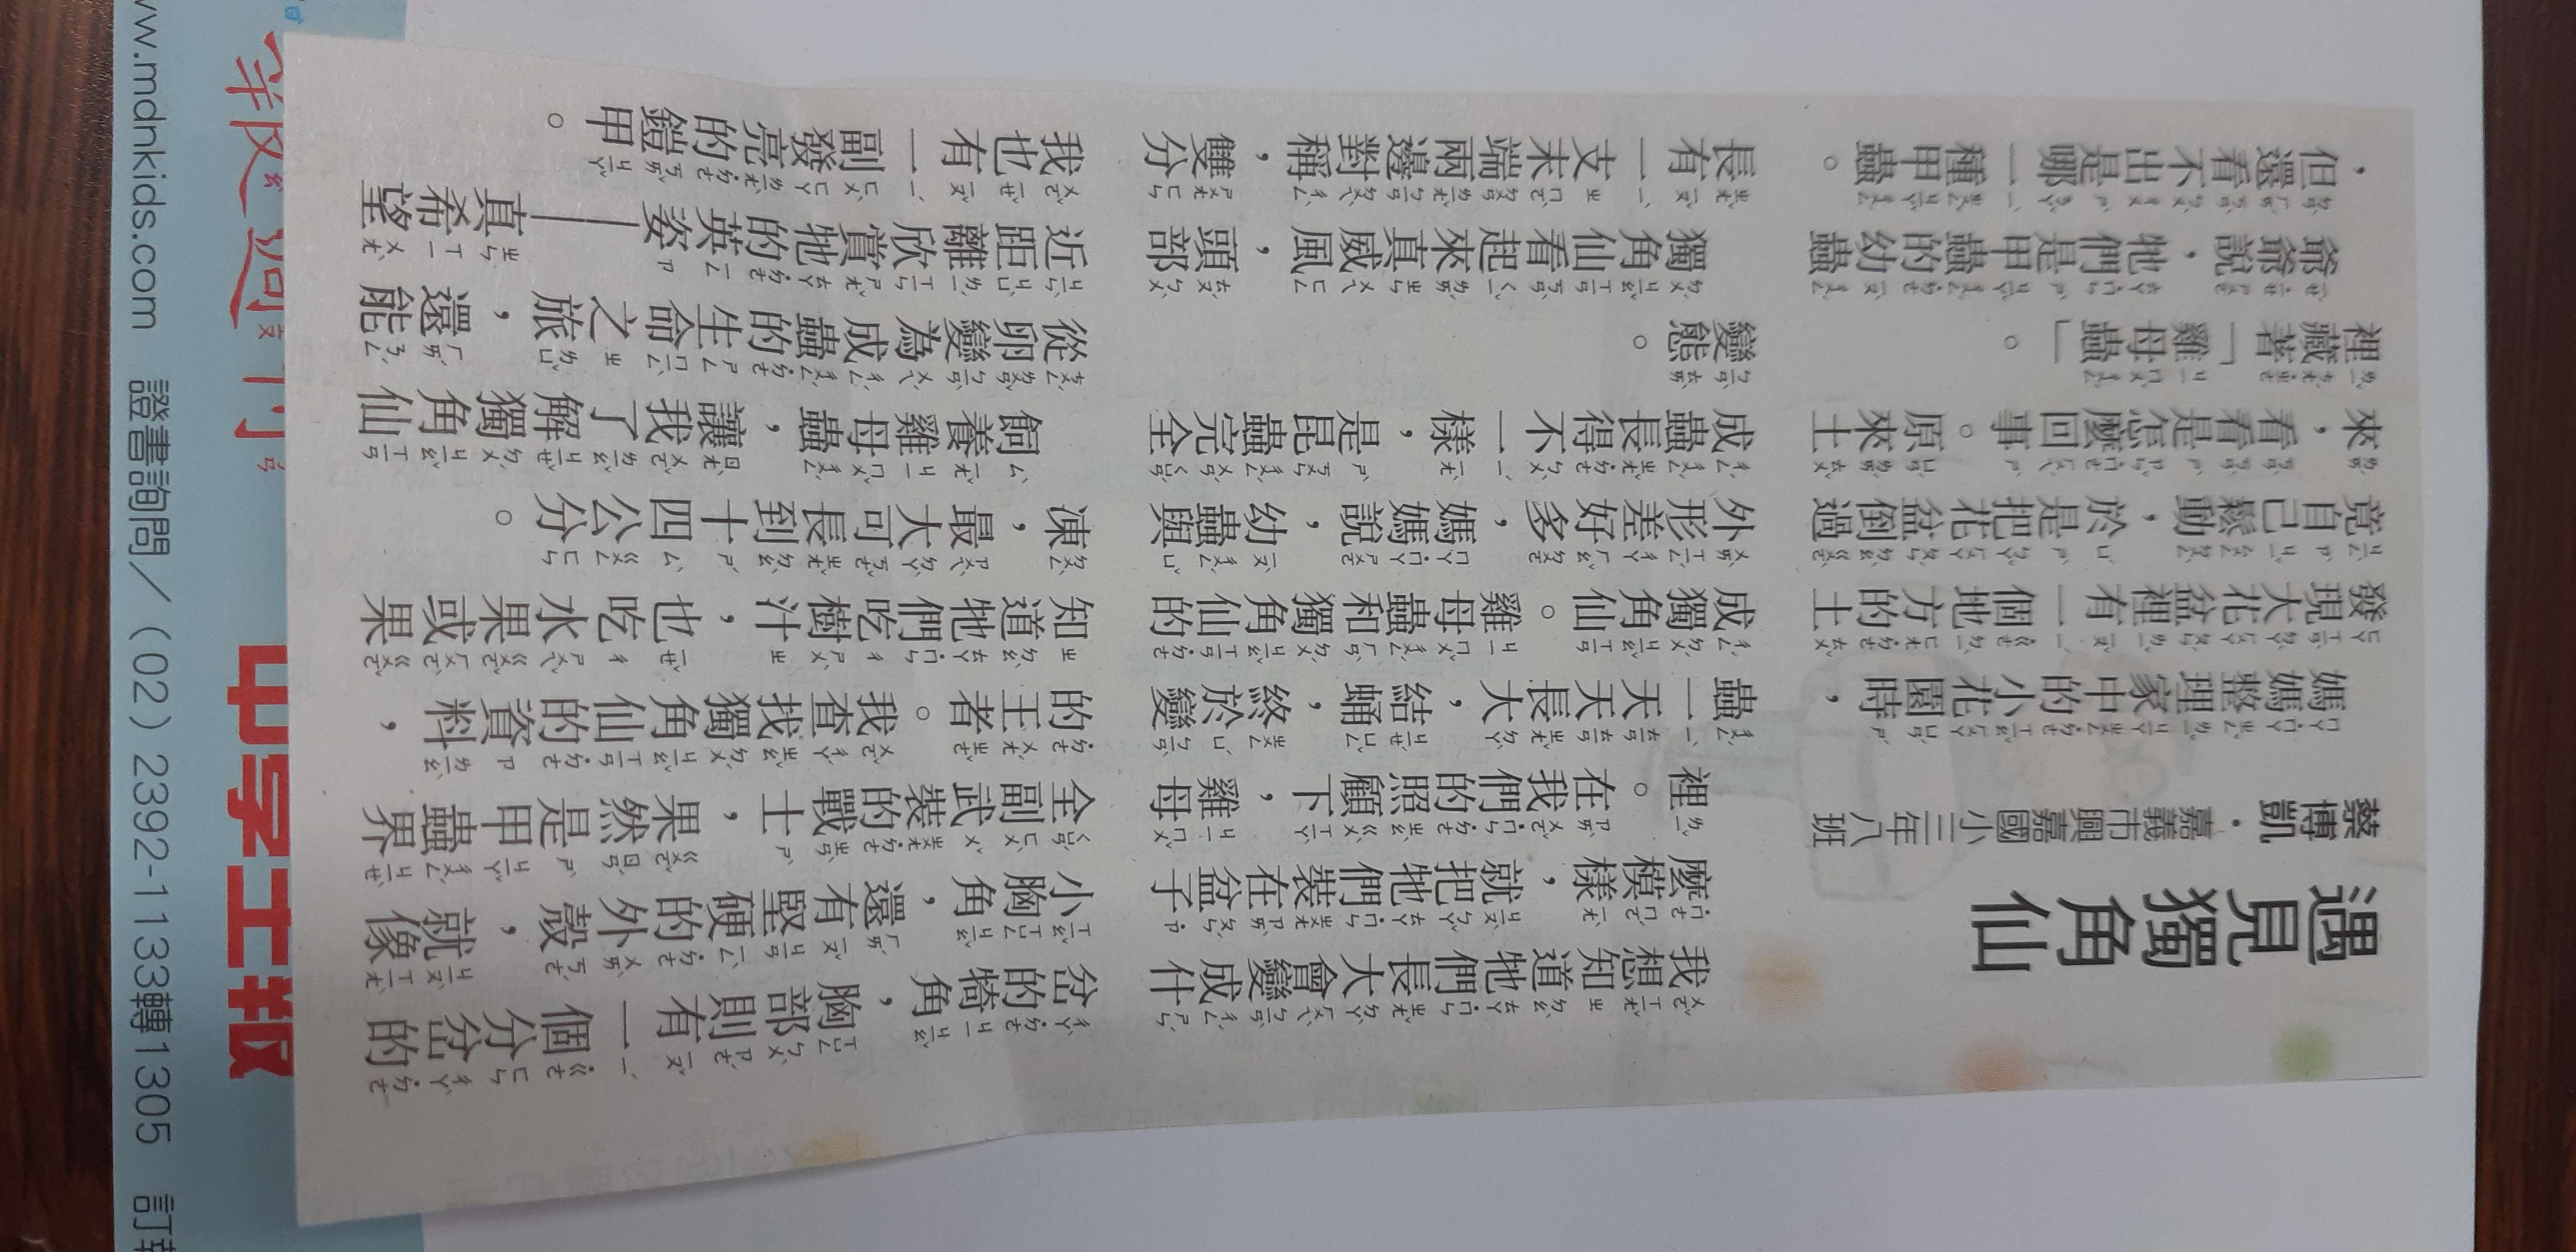 遇見獨角仙
蔡博凱．嘉義市興嘉國小三年八班
媽媽整理家中的小花園時，
發現大花盆裡有一個地方的土
竟自己鬆動，於是把花盆倒過
來，看看是怎麼回事。原來土
裡藏著「雞母蟲」。
爺爺說，牠們是甲蟲的幼蟲
，但還看不出是哪一種甲蟲。
我想知道牠們長大會變成什
麼模樣，就把牠們裝在盆子
裡。在我們的照顧下，雞母
蟲一天天長大，結蛹，終於變
成獨角仙。雞母蟲和獨角仙的
外形差好多，媽媽說，幼蟲與
成蟲長得不一樣，是昆蟲完全
變態。
獨角仙看起來真威風，頭部
長有一支末端兩邊對稱，雙分
岔的犄角，胸部則有一個分岔的
小胸角，還有堅硬的外殼，就像
全副武裝的戰士，果然是甲蟲界
的王者。我查找獨角仙的資料，
知道牠們吃樹汁，也吃水果或果
凍，最大可長到十四公分。
飼養雞母蟲，讓我了解獨角仙
從卵變為成蟲的生命之旅，還能
近距離欣賞牠的英姿——真希望
我也有一副發亮的鎧甲。
w.mdnkids.com 證書詢問／（02）2392-1133轉1305 訂